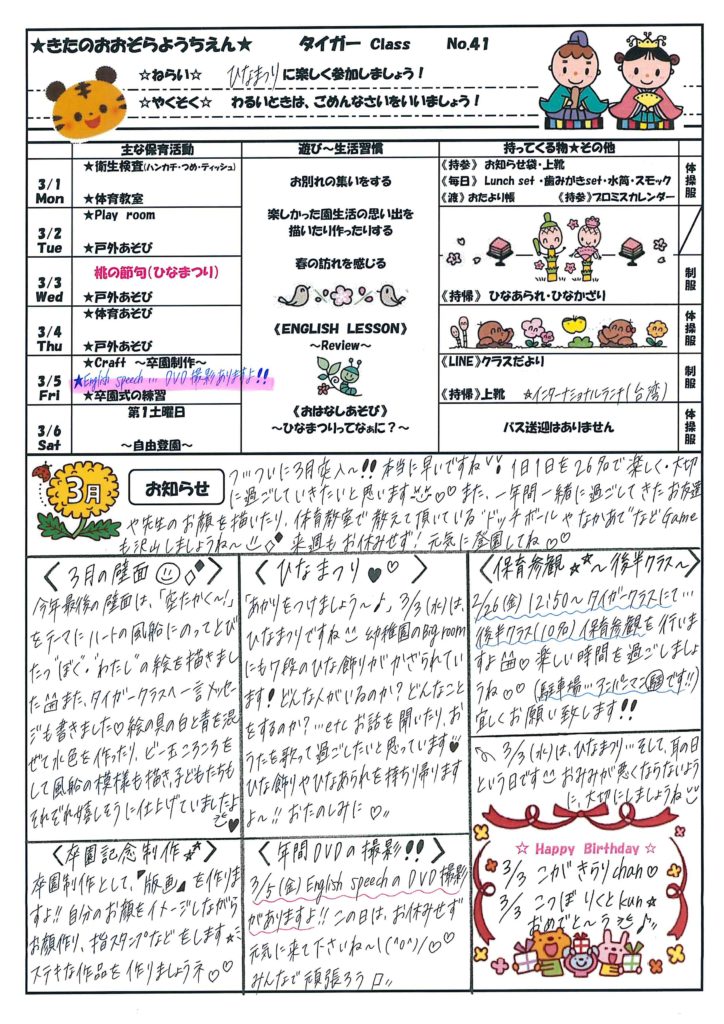 ★きたのおおぞらようちえん★ タイガー Class No.41
☆ねらい☆ ひなまつりに楽しく参加しましょう！
☆やくそく☆ わるいときは、ごめんなさいをいいましょう！
主な保育活動 遊び～生活習慣 持ってくる物★その他
3/1 Mon
★衛生検査(ハンカチ・つめ・ティッシュ)
★体育教室
《持参》 お知らせ袋・上靴
《毎日》 Lunch set ・歯みがきset・水筒・スモック
《渡》おたより帳 《持参》プロミスカレンダー
体操服
3/2 Tue
★Play room
★戸外あそび
3/3 Wed
桃の節句(ひなまつり)
★戸外あそび
《持帰》 ひなあられ・ひなかざり
制服
3/4 Thu
★体育あそび
★戸外あそび
体操服
3/5 Fri
★Craft ～卒園制作～
★English speech… DVD撮影ありますよ!!
★卒園式の練習
《LINE》クラスだより
《持帰》上靴 ☆インターナショナルランチ(台湾)
制服
3/6 Sat
第1土曜日
～自由登園～
バス送迎はありません
体操服
お別れの集いをする
楽しかった園生活の思い出を
描いたり作ったりする
春の訪れを感じる
《ENGLISH LESSON》
～Review～
《おはなしあそび》
～ひなまつりってなぁに？～
3月
お知らせ
ついついに3月突入～!! 本当に早いですね!! 1日1日を26名で楽しく・大切
に過ごしていきたいと思います♡♡ また、一年間一緒に過ごしてきたお友達
や先生のお顔を描いたり、保育教室で教えて頂いている"ドッチボールやなかあて"などGame
も沢山しましょうね～ 来週もお休みせず！元気に登園してね♡♡
〈3月の壁面〉
今年最後の壁面は、「空たかく～！」
をテーマにハートの風船にのってとび
たつ"ぼく"・"わたし"の絵を描きまし
た また、タイガークラスへ一言メッセー
ジも書きました♡絵の具の白と青を混
ぜて水色を作ったり、ビー玉ころころを
して風船の模様も描き、子どもたちも
それぞれ嬉しそうに仕上げていましたよ♥
〈ひなまつり♥♡〉
「あかりをつけましょう～♪」3/3(水)は、
ひなまつりですね 幼稚園のBig room
にも7段のひな飾りがかざられてい
ます！どんな人がいるのか？どんなこと
をするのか？…etc お話を聞いたり、お
うたを歌って過ごしたいと思っています♥
ひな飾りやひなあられを持ち帰ります
よ～!! おたのしみに♡
〈保育参観☆☆～後半クラス～〉
2/26(金) 12:50～ タイガークラスにて…
後半クラス(10名)保育参観を行いま
すよ♡ 楽しい時間を過ごしましょ
うね♡♡(駐車場…アンパンマン です!!)
宜しくお願い致します!!
3/3(水)は、ひなまつり…そして、耳の日
という日です おみみが悪くならないよう
に、大切にしましょうね
☆ Happy Birthday ☆
3/3 こが きらり chan♡
3/3 こつぼ りくと kun☆
おめでと～う♪
〈卒園記念制作☆〉
卒園制作として、『版画』を作りま
すよ!! 自分のお顔をイメージしながら
お顔作り、指スタンプなどをします☆
ステキな作品を作りましょうネ♡♡
〈年間DVDの撮影!!〉
3/5(金)English speechのDVD撮影
がありますよ!! この日は、お休みせず
元気に来て下さいね～!\(^o^)/♡♡
みんなで頑張ろう